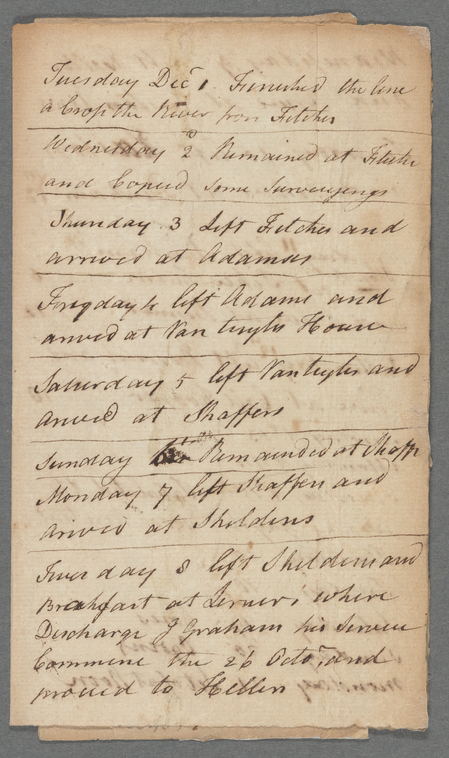 Tuesday Decr 1. Finished the line
a Crop the River from Fitches
Wednesday 2d Remained at Fitche
and Copied some Surveyings
Thursday 3 left Fitches and
arrived at Adamses
Freyday 4 left Adams and
arived at Van tuyls House
Saturday 5 left Vantuyls and
arived at Shaffers
Sunday 6th Remainded at Shaffr
Monday 7 left Shaffers and
arived at Sheldens
Tuesday 8 left Sheldens and
Breakfast at where
Discharge J Graham his Service
Commence the 26 Octor, and
proceed to Hellers